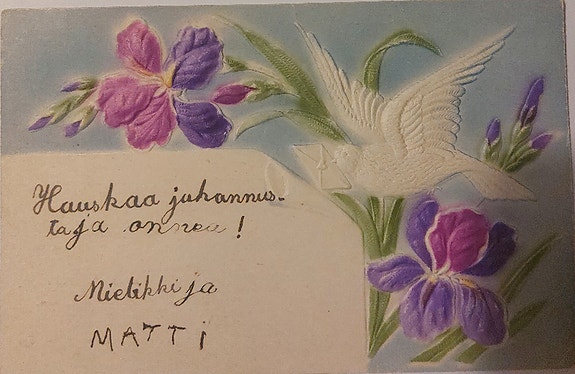 Hauskaa juhannus-
ta ja onnea!
Mielikki ja
MATTi